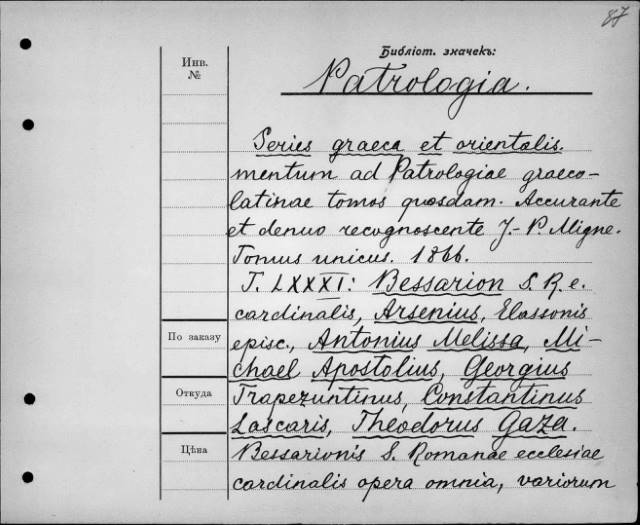 87
Библіот. значекъ:
Инв.
№
Patrologia.
Series graeca et orientalis.
mentum ad Patrologiae graeco-
latinae tomos quosdam. Accurante
et denuo recognoscente J.-P. Migne.
Tomus unicus. 1866.
T. LXXXI: Bessarion S. R. e.
cardinalis, Arsenius, Elassonis
По заказу
episc., Antonius Melissa, Mi-
chael Apostolius, Georgius
Откуда
Trapezuntinus, Constantinus
Lascaris, Theodorus Gaza.
Цѣна
Bessarionis S. Romanae ecclesiae
cardinalis opera omnia, variorum